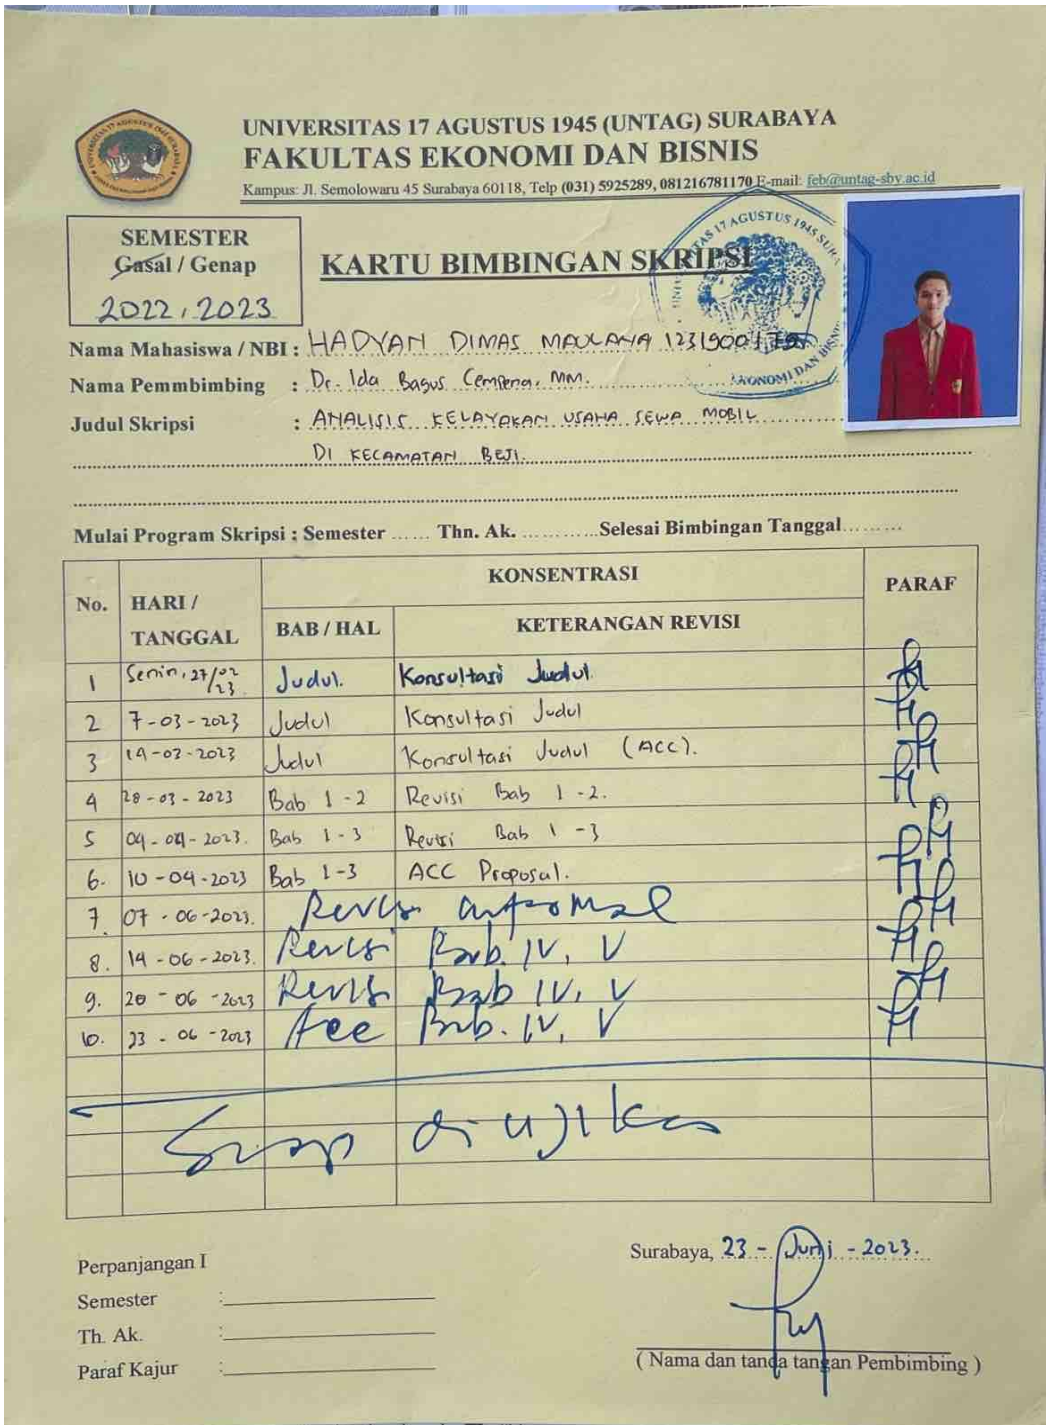 UNIVERSITAS 17 AGUSTUS 1945 (UNTAG) SURABAYA
FAKULTAS EKONOMI DAN BISNIS
Kampus: Jl. Semolowaru 45 Surabaya 60118, Telp (031) 5925289, 081216781170 E-mail: feb@untag-sby.ac.id
SEMESTER
Gasal / Genap
2022, 2023
KARTU BIMBINGAN SKRIPSI
Nama Mahasiswa / NBI : HADYAN DIMAS MAULANA
Nama Pemmbimbing : Dr. Ida Bagus Cempena, MM.
Judul Skripsi : ANALISIS KELAYAKAN USAHA SEWA MOBIL
DI KECAMATAN BEJI.
Mulai Program Skripsi : Semester ...... Thn. Ak. ............Selesai Bimbingan Tanggal.........
No. HARI / TANGGAL KONSENTRASI PARAF
BAB / HAL KETERANGAN REVISI
1 Senin, 27/02 23 Judul. Konsultasi Judul
2 7-03-2023 Judul Konsultasi Judul
3 14-03-2023 Judul Konsultasi Judul (ACC).
4 28-03-2023 Bab 1-2 Revisi Bab 1-2.
5 04-04-2023. Bab 1-3 Revisi Bab 1-3
6. 10-04-2023 Bab 1-3 ACC Proposal.
7. 07-06-2023. Revisi
8. 14-06-2023. Revisi Bab. IV, V
9. 20-06-2023 Revisi Bab IV, V
10. 23-06-2023 Acc Bab. IV, V
Siap diujikan
Perpanjangan I
Semester :
Th. Ak. :
Paraf Kajur :
Surabaya, 23 - Juni - 2023.
( Nama dan tanda tangan Pembimbing )